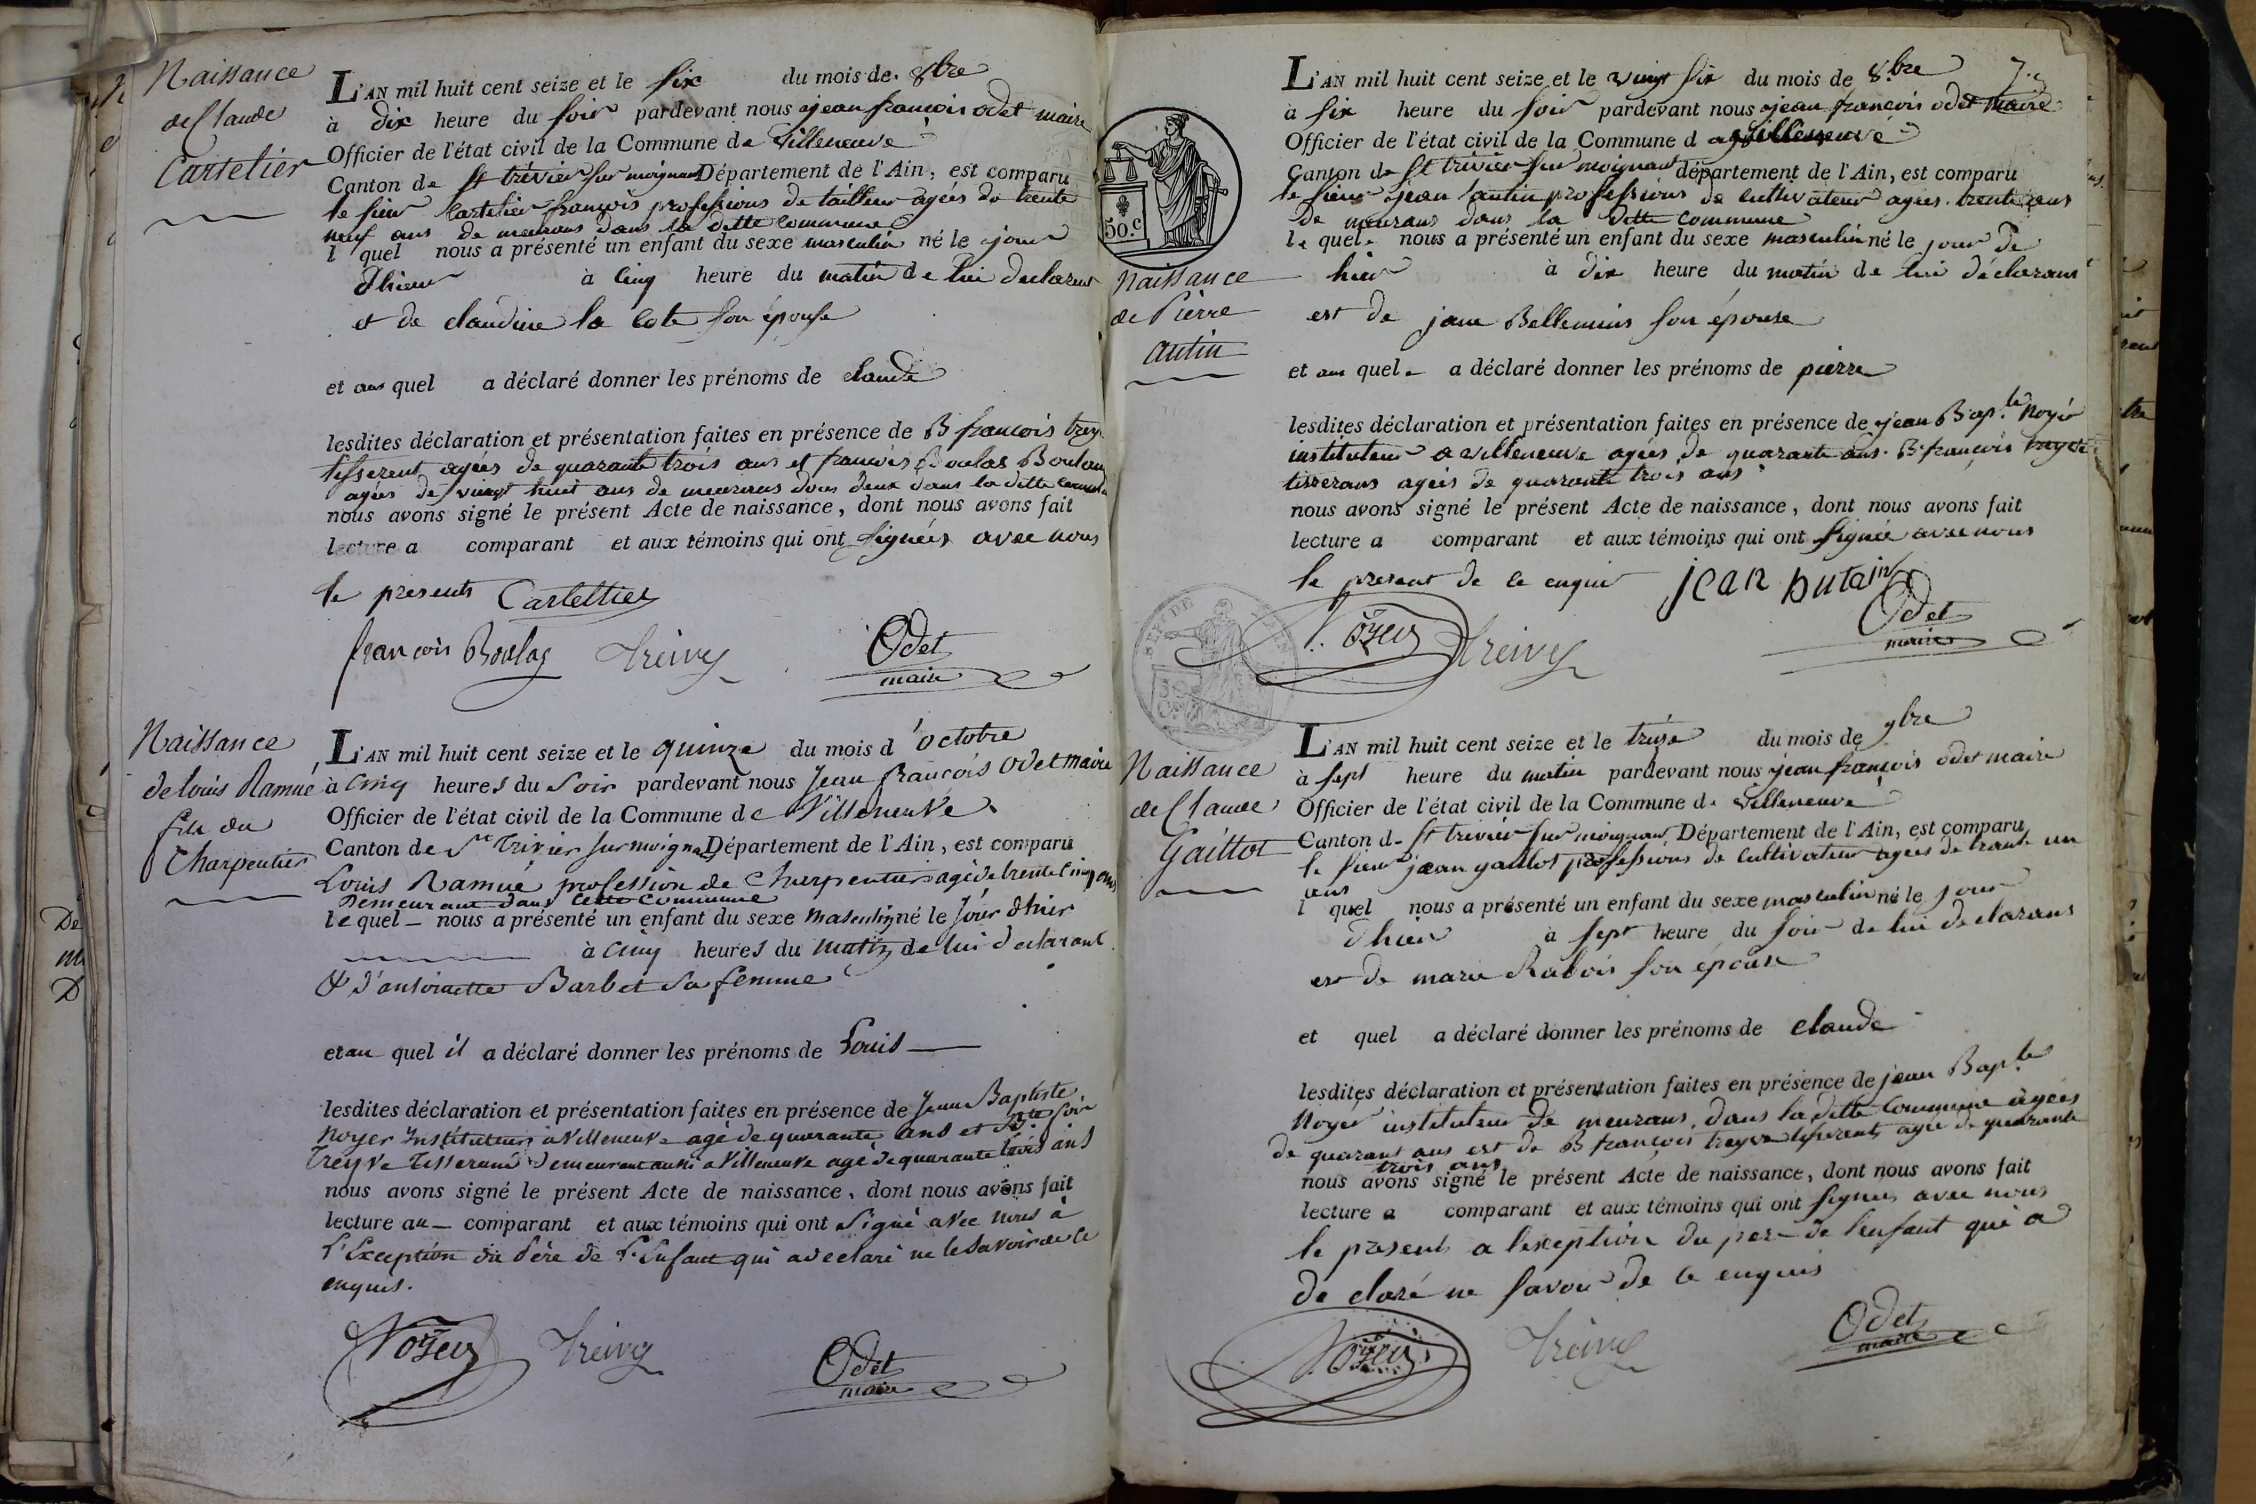 Naissance
de Claude
Cartelier
L'AN mil huit cent seize et le six du mois de 8bre
à dix heure du soir pardevant nous jean françois odet maire
Officier de l'état civil de la Commune de Villeneuve
Canton de st trivier sur moignans Département de l'Ain, est comparu
le sieur Cartelier françois professions de tailleur agées de trente
neuf ans de meurans dans la ditte commune
l quel nous a présenté un enfant du sexe masculin né le jour
d'hier à cinq heure du matin de lui declarant
et de claudine la cote son épouse
et au quel a déclaré donner les prénoms de claude
lesdites déclaration et présentation faites en présence de B françois trey
tisserent agées de quarante trois ans et françois Boulas
agées de vingt huit ans de meurans dans la ditte
nous avons signé le présent Acte de naissance, dont nous avons fait
lecture a comparant et aux témoins qui ont signées avec nous
le presents Carteltier
françois Boulas Treive Odet
maire
Naissance
de Louis Ramué
fils du
Charpentier
L'AN mil huit cent seize et le quinze du mois d'octobre
à cinq heures du soir pardevant nous Jean françois Odet maire
Officier de l'état civil de la Commune de Villeneuve
Canton de St Trivier sur moignans Département de l'Ain, est comparu
Louis Ramué profession de Charpentier agé de trente cinq ans
Demeurant dans cette commune
le quel nous a présenté un enfant du sexe masculin né le jour d'hier
à cinq heures du matin de lui declarant
& d'antoinette Barbet sa femme
et au quel il a déclaré donner les prénoms de Louis
lesdites déclaration et présentation faites en présence de Jean Baptiste
Noyer Instituteur à Villeneuve agé de quarante ans et
treyve tisserand demeurant aussi a Villeneuve agé de quarante trois ans
nous avons signé le présent Acte de naissance, dont nous avons fait
lecture au comparant et aux témoins qui ont signé avec nous à
l'Exception du Père de l'Enfant qui a declaré ne le savoir de ce
enquis.
Noyer Treive Odet
maire
7.
50.C
Naissance
de Pierre
autin
L'AN mil huit cent seize et le vingt six du mois de 8.bre
à six heure du soir pardevant nous jean françois odet maire
Officier de l'état civil de la Commune d villeneuve
Canton de st trivier sur moignans département de l'Ain, est comparu
le sieur jean autin professions de cultivateur agées trente ans
de meurans dans la ditte commune
le quel nous a présenté un enfant du sexe masculin né le jour de
hier à dix heure du matin de lui déclarant
est de jane Bellemins son épouse
et au quel a déclaré donner les prénoms de pierre
lesdites déclaration et présentation faites en présence de jean Bap.te noyé
instituteur a villeneuve agées de quarante ans. B. françois treyve
tisserans agées de quarante trois ans
nous avons signé le présent Acte de naissance, dont nous avons fait
lecture a comparant et aux témoins qui ont signée avec nous
le present de ce enquis jean
Noyer Treive Odet
maire
Naissance
de Claude
Gaillot
L'AN mil huit cent seize et le trése du mois de 9bre
à sept heure du matin pardevant nous jean françois odet maire
Officier de l'état civil de la Commune d. Villeneuve
Canton d. st trivier sur moignans Département de l'Ain, est comparu
le sieur jean gaillot professions de cultivateur agées de trante un
ans
l quel nous a présenté un enfant du sexe masculin né le jour
d'hier à sept heure du soir de lui declarans
est de marie Rabois son épouse
et quel a déclaré donner les prénoms de claude
lesdites déclaration et présentation faites en présence de jean Bap.te
Noyé instituteur de meurans dans la ditte commune agées
de quarant ans est de B françois treyve tisserent agée de quarante
trois ans
nous avons signé le présent Acte de naissance, dont nous avons fait
lecture a comparant et aux témoins qui ont signées avec nous
le presents a lexeption du per de lenfant qui a
de claré ne savoir de ce enquis
Noyer Treive Odet
maire